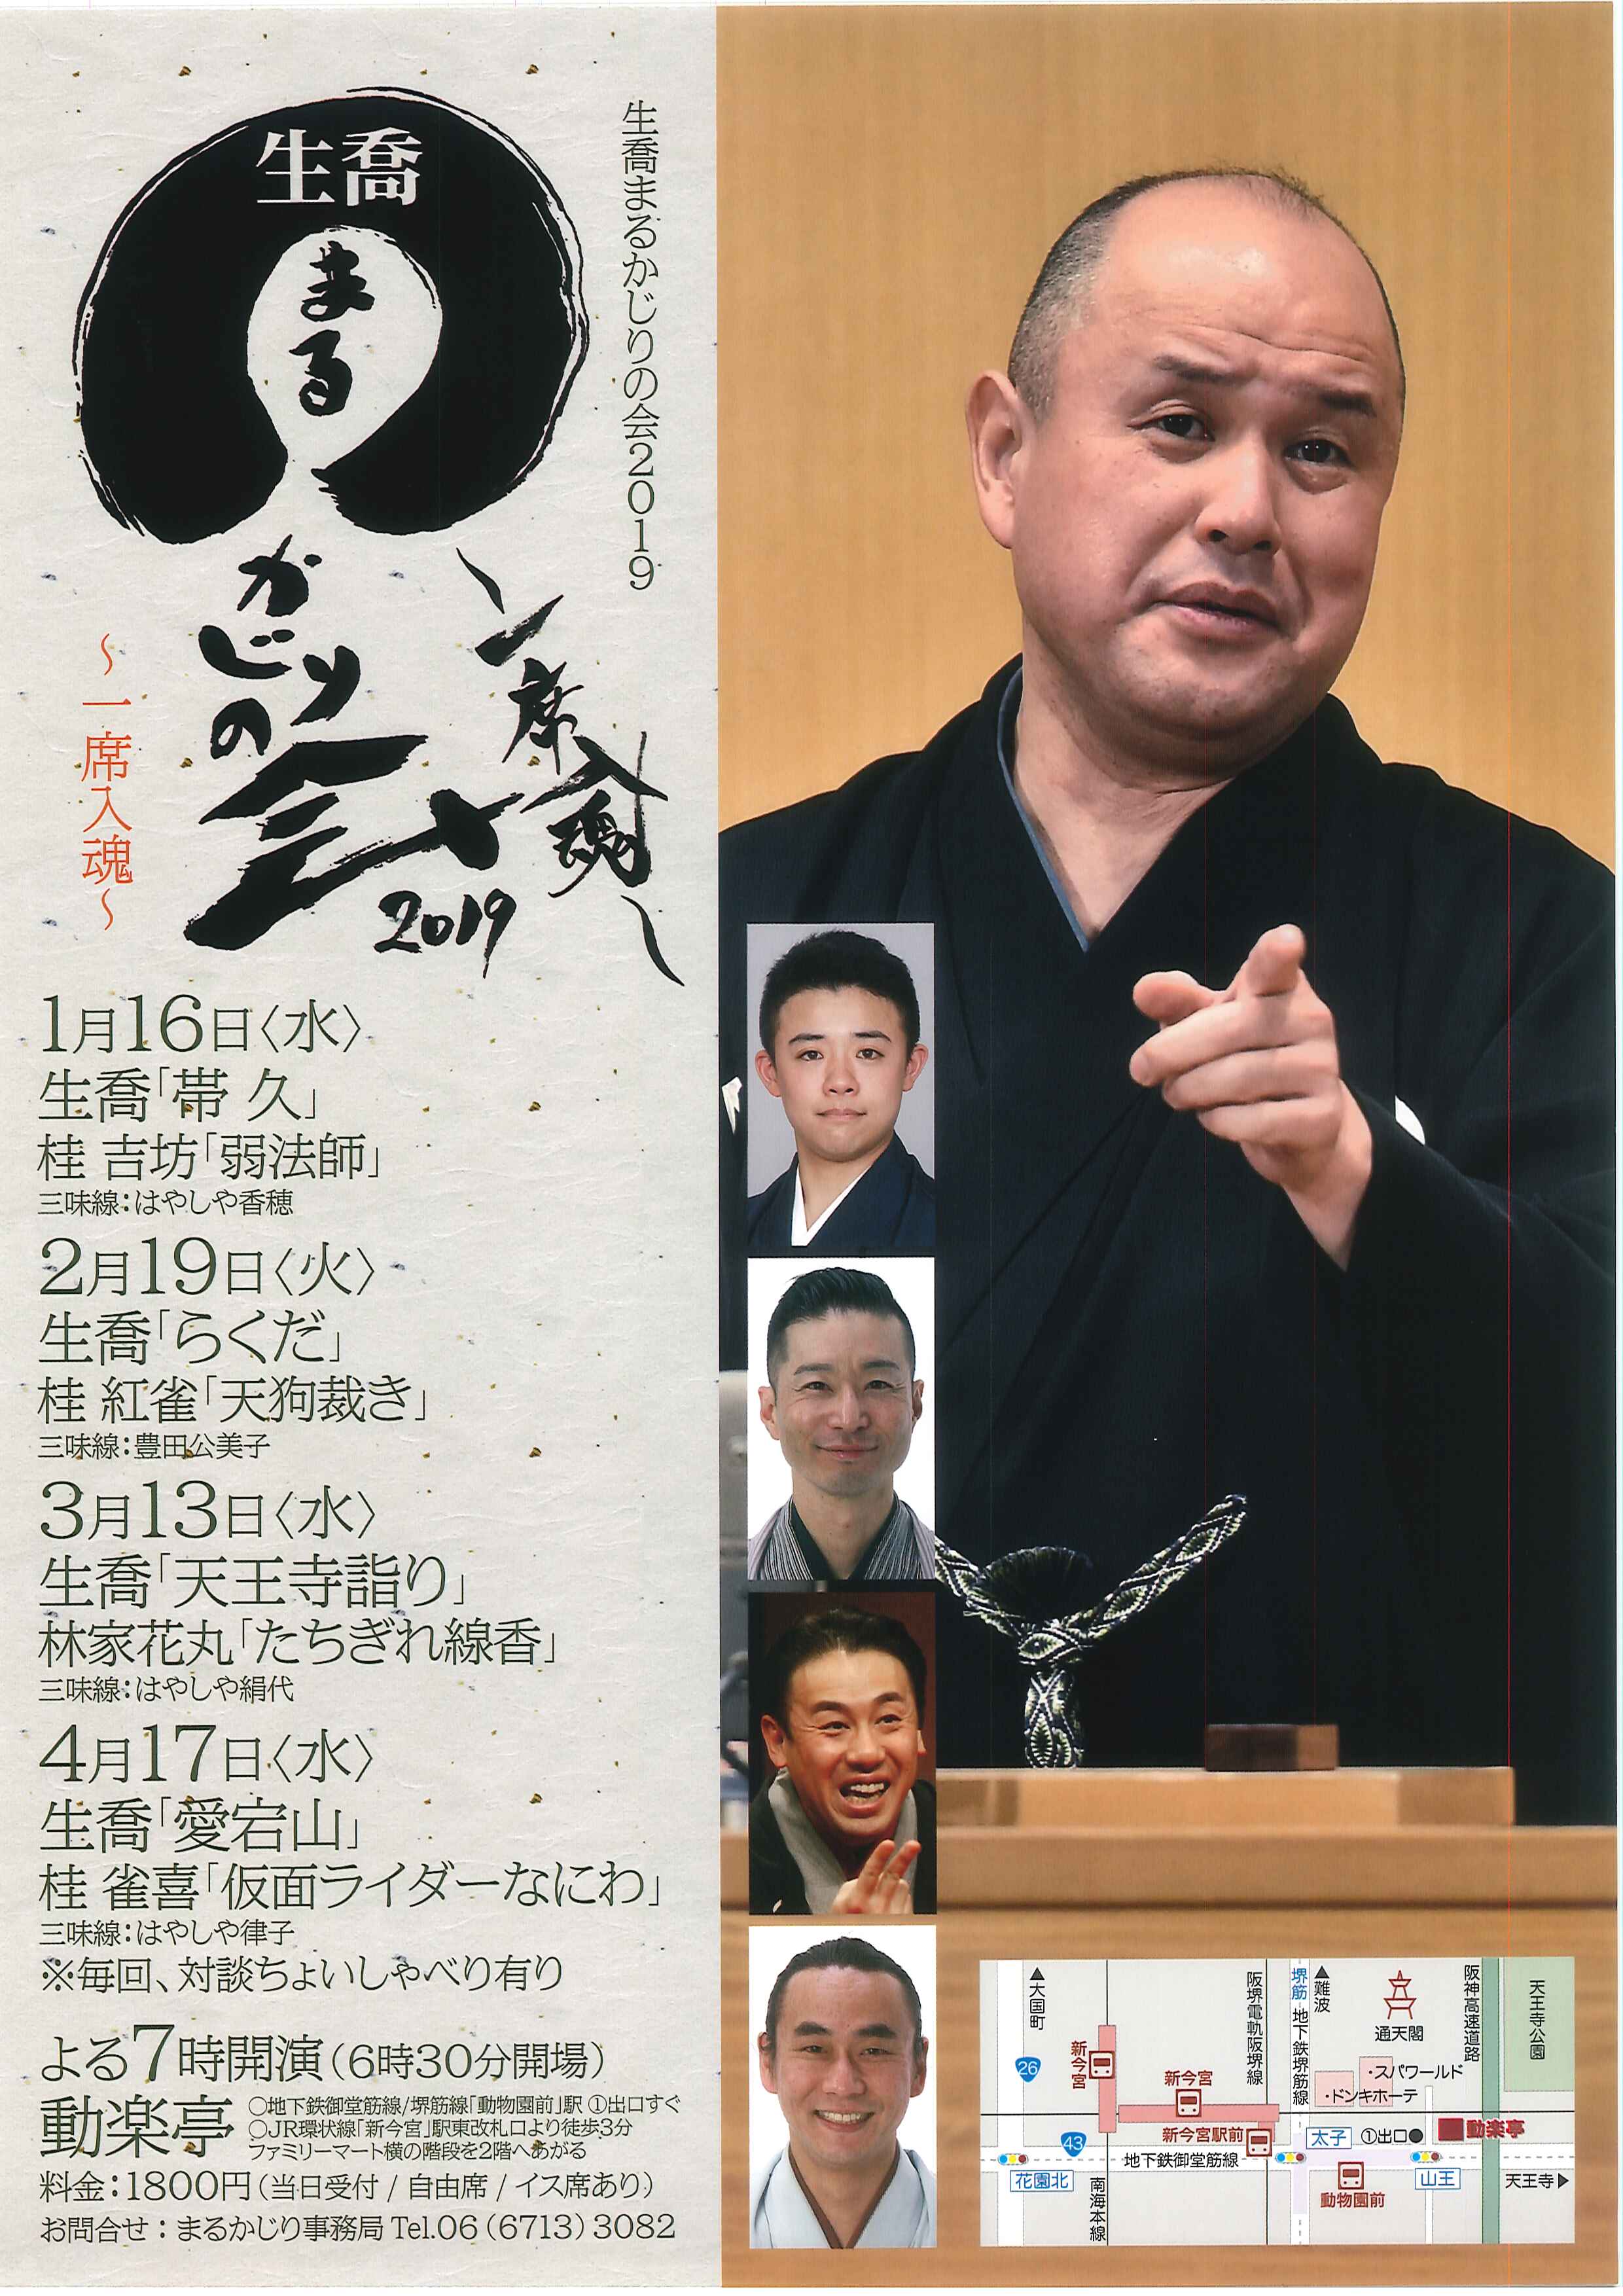 生喬まるかじりの会2019
生喬
まる
かじりの会
〜一席入魂〜
2019
〜一席入魂〜
1月16日〈水〉
生喬「帯 久」
桂 吉坊「弱法師」
三味線：はやしや香穂
2月19日〈火〉
生喬「らくだ」
桂 紅雀「天狗裁き」
三味線：豊田公美子
3月13日〈水〉
生喬「天王寺詣り」
林家花丸「たちぎれ線香」
三味線：はやしや絹代
4月17日〈水〉
生喬「愛宕山」
桂 雀喜「仮面ライダーなにわ」
三味線：はやしや律子
※毎回、対談ちょいしゃべり有り
よる7時開演（6時30分開場）
動楽亭
○地下鉄御堂筋線/堺筋線「動物園前」駅 ①出口すぐ
○JR環状線「新今宮」駅東改札口より徒歩3分
ファミリーマート横の階段を2階へあがる
料金：1800円（当日受付 / 自由席 / イス席あり）
お問合せ：まるかじり事務局 Tel.06（6713）3082
▲大国町
阪堺電軌阪堺線
堺筋
地下鉄堺筋線
▲難波
通天閣
阪神高速道路
天王寺公園
26
新今宮
新今宮
・スパワールド
・ドンキホーテ
新今宮駅前
太子
①出口●
動楽亭
43
地下鉄御堂筋線
花園北
南海本線
動物園前
山王
天王寺▶